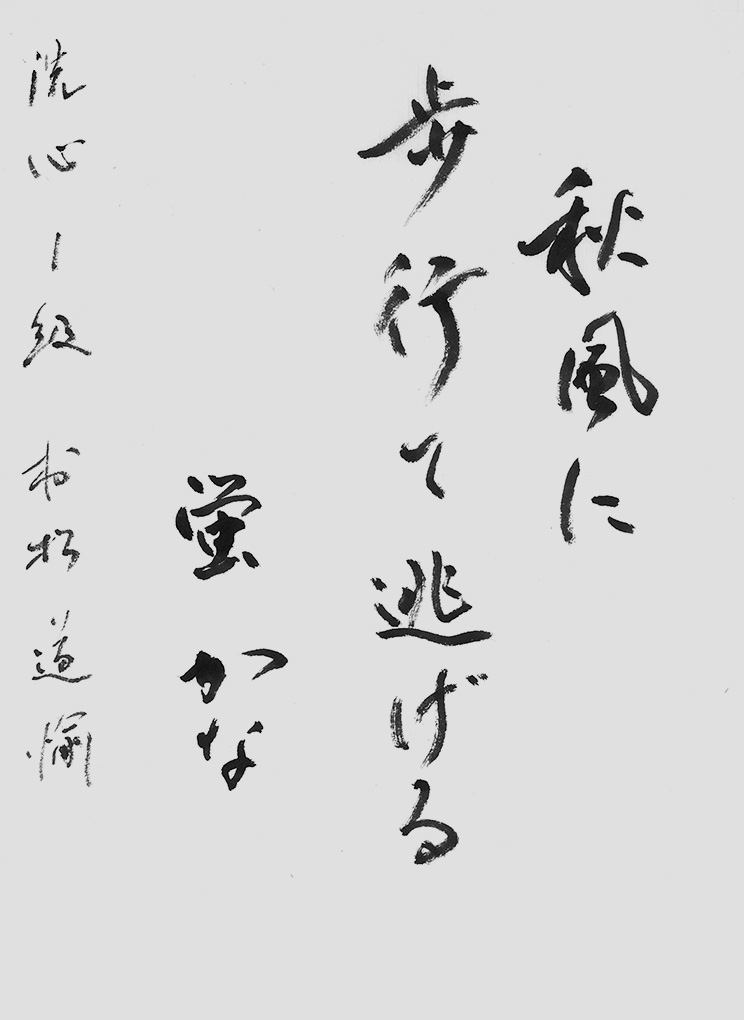 秋風に
歩行て逃げる
蛍かな
洗心 1級 村松道愉